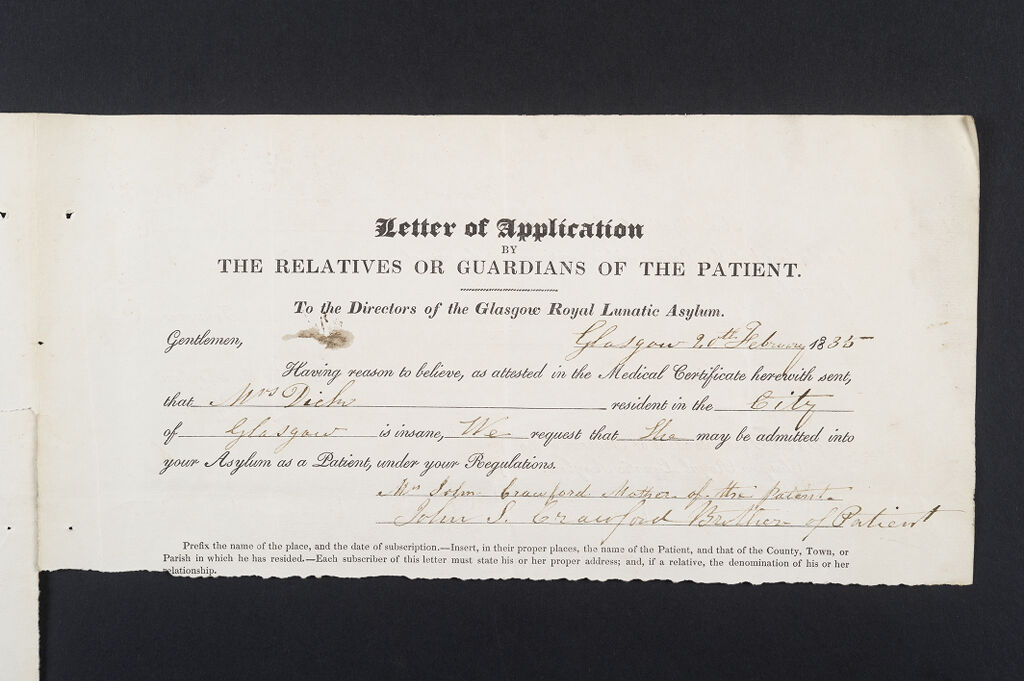 Letter of Application
BY
THE RELATIVES OR GUARDIANS OF THE PATIENT.
To the Directors of the Glasgow Royal Lunatic Asylum.
Gentlemen, Glasgow 20th February 1835
Having reason to believe, as attested in the Medical Certificate herewith sent,
that Mrs Dick resident in the City
of Glasgow is insane, We request that She may be admitted into
your Asylum as a Patient, under your Regulations.
Mrs John Crawford Mother of the Patient
John S. Crawford Brother of Patient
Prefix the name of the place, and the date of subscription.—Insert, in their proper places, the name of the Patient, and that of the County, Town, or
Parish in which he has resided.—Each subscriber of this letter must state his or her proper address; and, if a relative, the denomination of his or her
relationship.